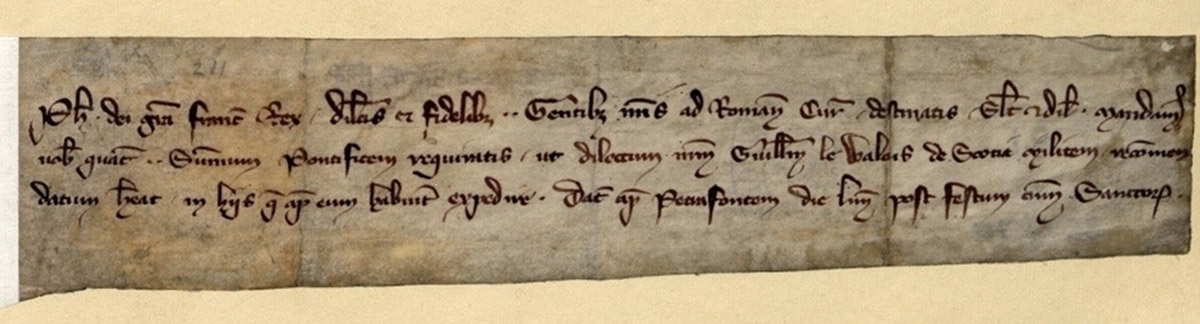 211
Ph. dei gra Franc Rex, dilcis et fidelibz .. Gentibz nris ad Romam Cur destinatis, Salt et dil. Mandamus
vob quat .. Summum Pontificem requiratis, ut dilectum nrm Guillm le Walois de Scocia militem, recomen
datum heat in hiis q ap eum habuit expedire. Dat ap Petrafontem die lun post festum omn Sanctor.